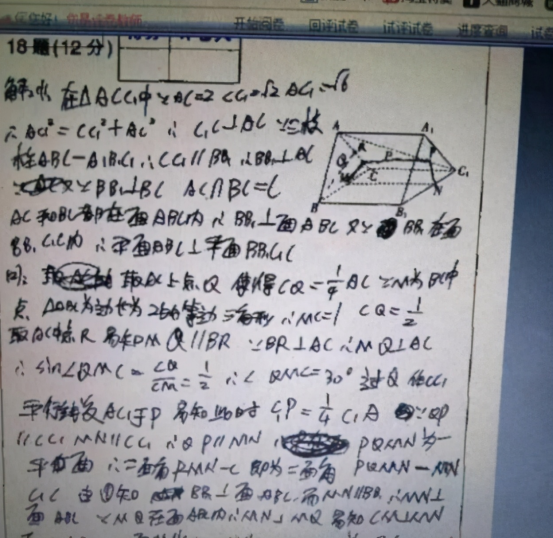 开始阅卷 回评试卷 试评试卷 进度查阅 试卷
18题(12分)
解:(1) 在△ACC₁中∵AC=2 CC₁=√2 AC₁=√6
∴AC₁²=CC₁²+AC² ∴C₁C⊥AC ∵三棱
柱ABC-A₁B₁C₁∴CC₁∥BB₁∴BB₁⊥AC
又∵BB₁⊥BC AC∩BC=C
AC和BC都在面ABC内∴BB₁⊥面ABC 又∵BB₁在面
BB₁C₁C内∴平面ABC⊥平面BB₁C₁C
取AC上点Q 使得CQ=1/4AC ∵M为BC中
点 △ABC为边长为2的等边三角形∴MC=1 CQ=1/2
取AC中点R 易知MQ∥BR ∵BR⊥AC∴MQ⊥AC
∴sin∠QMC=CQ/CM=1/2 ∴∠QMC=30° 过Q作CC₁
平行线交AC₁于P 易知此时C₁P=1/4C₁A ∵QP
∥CC₁ MN∥CC₁∴QP∥MN PQMN为一
平面 ∴二面角PMN-C即为二面角PQMN-MN
C₁C 由①知 BB₁⊥面ABC 而MN∥BB₁∴MN⊥
面ABC ∵MQ在面ABC内∴MN⊥MQ 易知CM⊥MN
A A₁ R Q P M C N C₁ B B₁